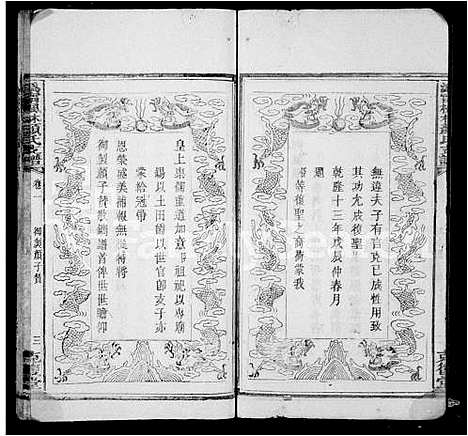 無違夫子有言克已成性用致
其功允成復聖
乾隆十三年戊辰仲春月
題
復聖之裔蒙我
皇上崇儒重道加意甲祖祀以專廟
錫以土田的以世官即支子亦
蒙給冠帶
恩榮盛美浦報無
御製顏子贊敬謹首俾世世瞻仰
卷一
御製顏子贊
三